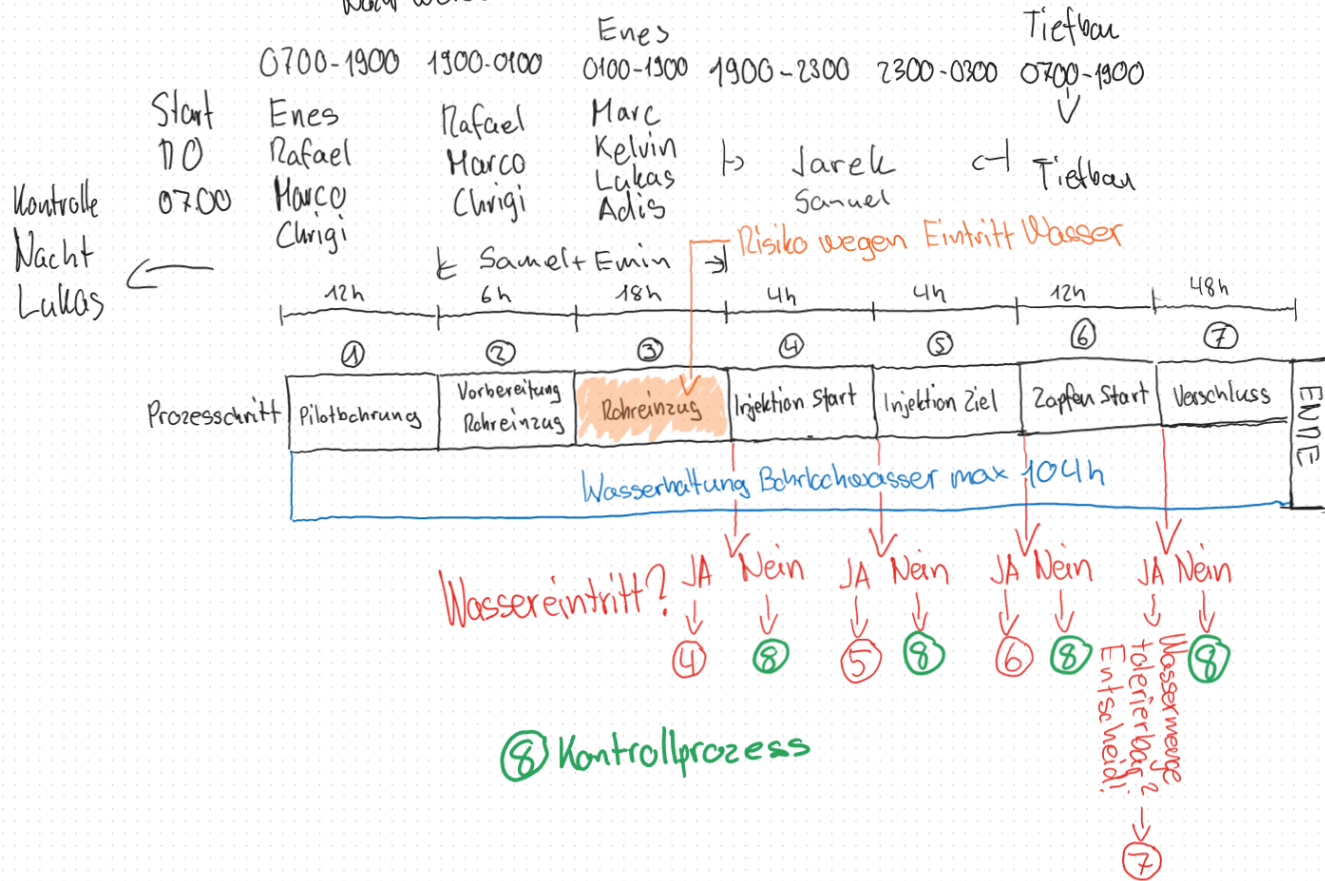 Enes
Tiefbau
0700-1900 1900-0100 0100-1900 1900-2300 2300-0300 0700-1900
Start
DO
07.00
Enes
Rafael
Marco
Chrigi
Rafael
Marco
Chrigi
Marc
Kelvin
Lukas
Adis
Jarek
Samuel
Tiefbau
Kontrolle
Nacht
Lukas
Samel + Emin
Risiko wegen Eintritt Wasser
12h 6h 18h 4h 4h 12h 48h
1 2 3 4 5 6 7
Prozesschritt
Pilotbohrung
Vorbereitung
Rohreinzug
Rohreinzug
Injektion Start
Injektion Ziel
Zapfen Start
Verschluss
ENDE
Wasserhaltung Bohrlochwasser max 104h
Wassereintritt? JA Nein JA Nein JA Nein JA Nein
4 8 5 8 6 8 8
Wassermenge
tolerierbar?
Entscheid!
7
8 Kontrollprozess